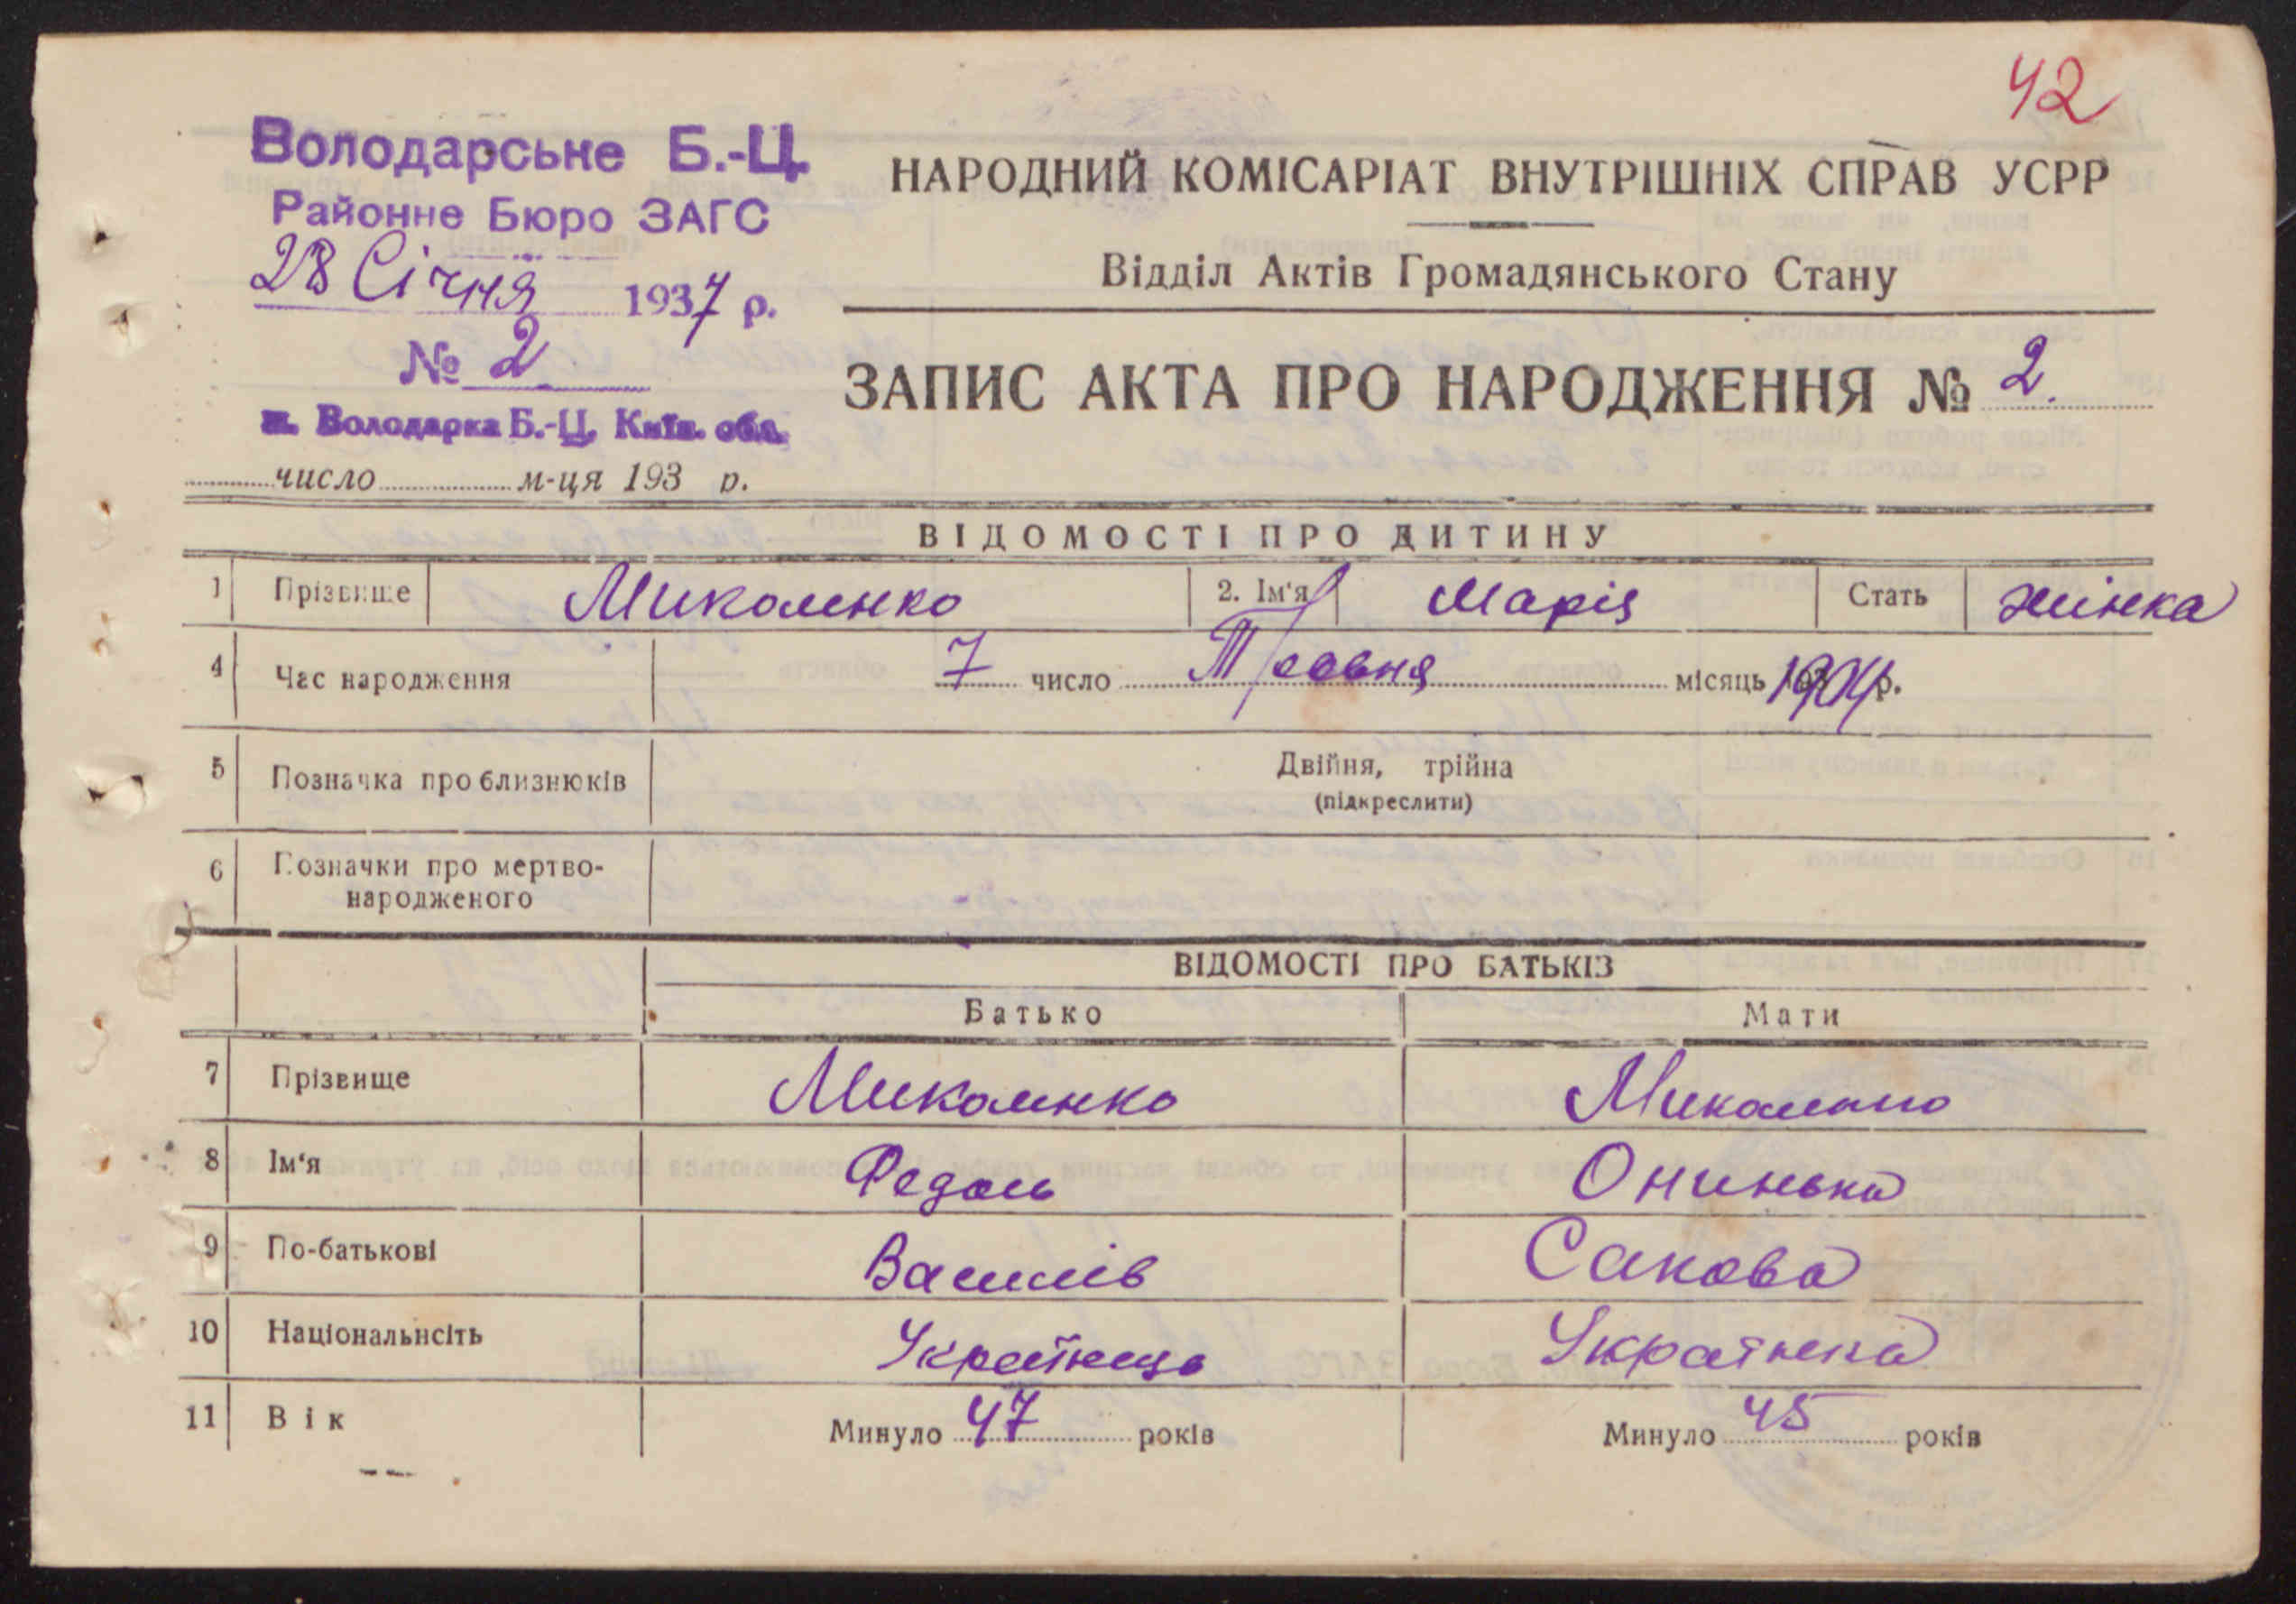 42
Володарське Б.-Ц.
Районне Бюро ЗАГС
28 Січня 1937 р.
№ 2
м. Володарка Б.-Ц. Київ. обл.
число м-ця 193 р.
НАРОДНИЙ КОМІСАРІАТ ВНУТРІШНІХ СПРАВ УСРР
Відділ Актів Громадянського Стану
ЗАПИС АКТА ПРО НАРОДЖЕННЯ № 2.
ВІДОМОСТІ ПРО ДИТИНУ
1 Прізвище Миколенко 2. Ім'я Марія Стать жінка
4 Час народження 7 число Травня місяць 1904 р.
5 Позначка про близнюків Двійня, трійна
(підкреслити)
6 Позначки про мертво-
народженого
ВІДОМОСТІ ПРО БАТЬКІВ
Батько Мати
7 Прізвище Миколенко Миколенко
8 Ім'я Федось
9 По-батькові Василів Сакова
10 Національнсіть Українець Українка
11 Вік Минуло 47 років Минуло 45 років